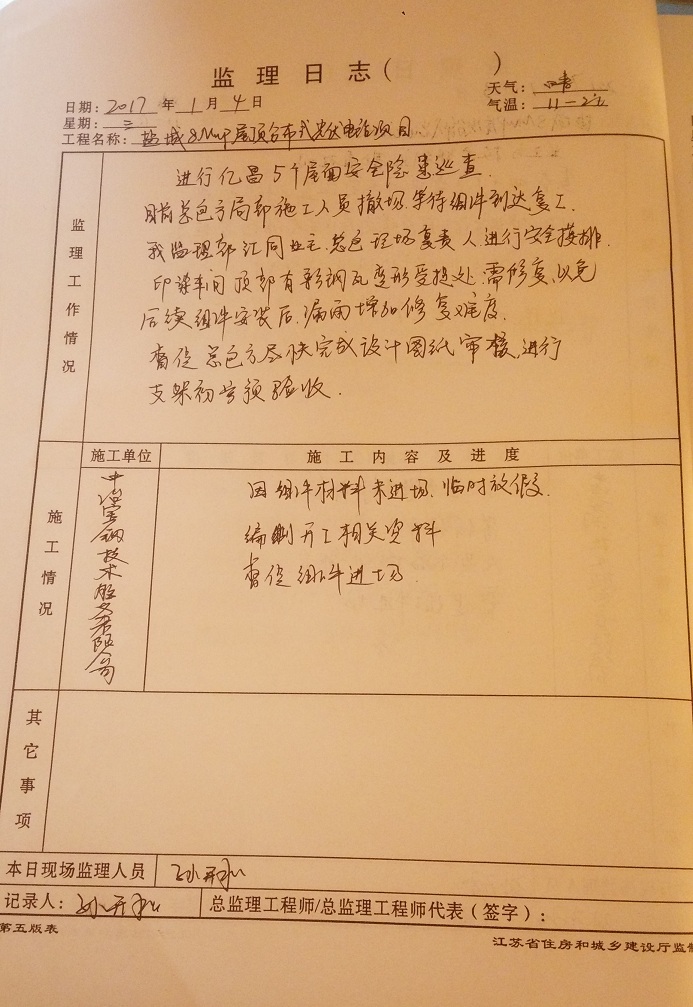 监理日志(                )
日期: 2017 年 1 月 4 日
天气: 晴
星期: 三
气温: 11-2℃
工程名称: 盐城8MWP屋顶分布式光伏电站项目
监理工作情况
进行亿昌5个屋面安全隐患巡查.
目前总包方局部施工人员撤场.等待组件到达复工.
我监理部汇同业主.总包现场负责人进行安全接排.
印染车间顶部有彩钢瓦变形受损处.需修复.以免
后续组件安装后.漏雨增加修复难度.
督促总包方尽快完成设计图纸审核,进行
支架初步预验收.
施工单位
施工内容及进度
施工情况
技术服务有限公司
因组件材料未进场.临时放假.
编制开工相关资料
督促组件进场.
其它事项
本日现场监理人员 孙开
记录人: 孙开
总监理工程师/总监理工程师代表(签字):
第五版表
江苏省住房和城乡建设厅监制